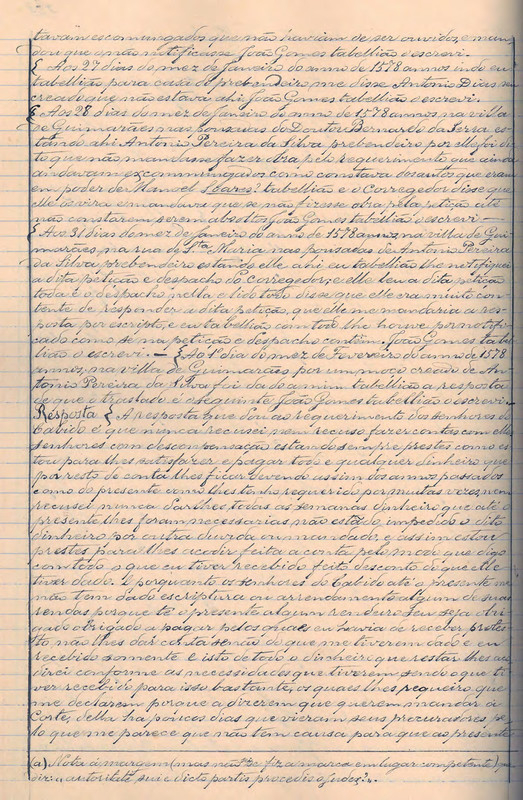 tavam escomungados que não haviam de ser ouvidos, e man-
dou que o não notificasse João Gomes tabellião o escrevi. —
{ Aos 27 dias do mez de Janeiro do anno de 1578 annos indo eu
tabellião para casa do prebendeiro, me disse Antonio Dias seu
creado que não estava ahi João Gomes tabellião o escrevi.
{ Aos 28 dias do mez de Janeiro do anno de 1578 annos, na villa
de Guimarães nas pousadas do Doutor Bernardo da Serra es-
tando ahi Antonio Pereira da Silva prebendeiro por elle foi di-
to que não mandasse fazer obra pelo requerimento que ainda
andavam excommungados como constava dos autos que eram
em poder de Manoel Soares? tabellião e o Corregedor disse que
elle os vira e mandava que se não fizesse obra pela petição até
não constarem serem absoltos João Gomes tabellião o escrevi —
{ Aos 31 dias do mez de Janeiro do anno de 1578 annos, na villa de Gui-
marães na rua de Sta. Maria nas pousadas de Antonio Pereira
da Silva prebendeiro estando elle ahi eu tabellião lhe notifiquei
a dita petição e despacho do corregedor, e elle leu a dita petição
toda e o despacho nella e lido todo disse que elle era muito con-
tente de responder a dita petição, que elle me mandaria a res-
posta por escripto, e eu tabellião com todo lhe houve por notifi-
cado como se na petição e despacho contém, João Gomes tabel-
lião o escrevi. — { Ao 1º dia do mez de Fevereiro do anno de 1578
annos, na villa de Guimarães por um moço creado de An-
tonio Pereira da Silva foi dado a mim tabellião a resposta
de que o traslado é o seguinte João Gomes tabellião o escrevi —
Resposta { A resposta que dou ao requerimento dos senhores do
Cabido é que nunca recusei nem recuso fazer contas com elles
senhores com descompensação estando sempre prestes como es-
tou para lhes satisfazer e pagar todo e qualquer dinheiro que
por resto de conta lhes ficar devendo assim dos annos passados
como do presente como lhes tenho requerido por muitas vezes, nem
recusei nunca dar lhes todas as semanas dinheiro que até o
presente lhes foram necessarias não estado, impedido o dito
dinheiro por outra duvida ou mandado, e assim estou
prestes para lhes acodir feita a conta pelo modo que digo
com todo o que eu tiver recebido feito desconto do que elle
tiver dado. E porquanto os senhores do Cabido até o presente me
não tem dado escriptura ou arrendamento algum de suas
rendas porque té o presente algum rendeiro seu seja obri-
gado obrigado a pagar pelos quaes eu havia de receber protes-
to, não lhes dar conta senão do que me tiverem dado e eu
recebido somente e isto de todo o dinheiro que restar lhes aco-
direi conforme as necessidades que tiverem sendo o que ti-
ver recebido para isso bastante, os quaes lhes requeiro que
me declarem porque a dizerem que querem mandar á
Corte, della ha poucos dias que vieram seus procuradores pe-
lo que me parece que não tem causa para que ao presente
(a) Nota á margem (mas não se fiz a marca em lugar competente)
autoritate sui e dicto partis procedis o Judeçi?.